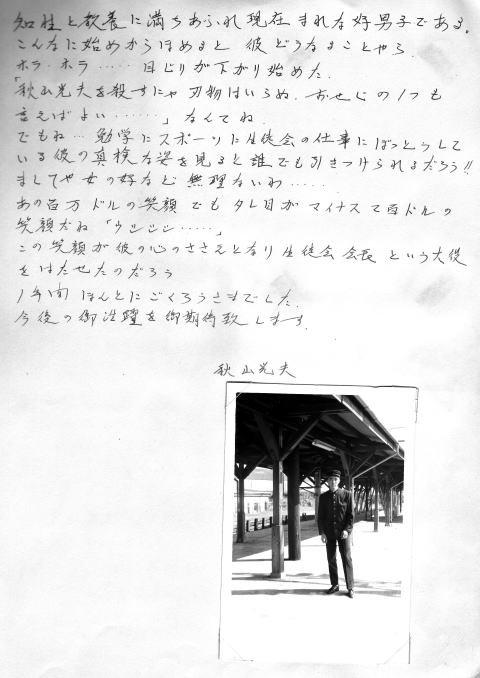 知性と教養に満ちあふれ現在まれな好男子である。
こんなに始めからほめると彼どうなることやら
ホラ・ホラ‥‥‥目じりが下がり始めた.
「秋山光夫を殺すにゃ刃物はいらぬ. おせじの1つも
言えばよい‥‥‥」なんてね.
でもね… 勉学にスポーツに生徒会の仕事にぼっとうして
いる彼の真検な姿を見ると誰でも引きつけられるだろう!!
ましてや女の好など無理ないわ‥‥‥
あの百万ドルの笑顔でもタレ目がマイナスで百ドルの
笑顔だね「ウシシシ‥‥‥」
この笑顔が彼の心のささえとなり生徒会会長という大役
をはたせたのだろう
1年間ほんとにごくろうさまでした.
今後の御活躍を御期待致します.
秋山光夫